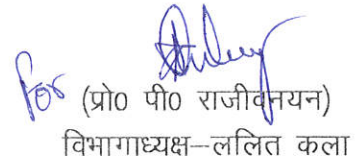 For
(प्रो0 पी0 राजीवनयन)
विभागाध्यक्ष–ललित कला